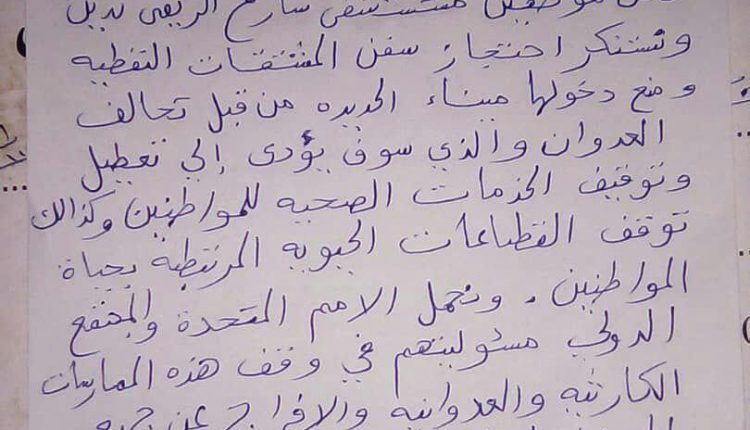 موظفين مستشفى
ونستنكر احتجاز سفن المشتقات النفطيه
ومنع دخولها ميناء الحديده من قبل تحالف
العدوان والذي سوف يؤدى إلى تعطيل
وتوقيف الخدمات الصحيه للمواطنين وكذالك
توقف القطاعات الحيويه المرتبطة بحياة
المواطنين . ونحمل الامم المتحدة والمجتمع
الدولي مسئوليتهم في وقف هذه الممارسات
الكارثيه والعدوانيه والافراج عن